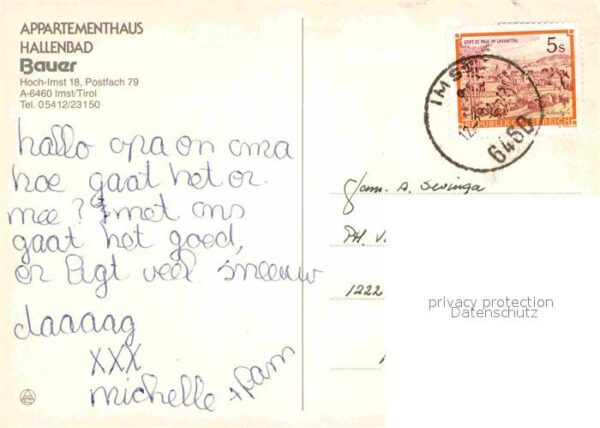 APPARTEMENTHAUS
HALLENBAD
Bauer
Hoch-Imst 18, Postfach 79
A-6460 Imst/Tirol
Tel. 05412/23150
hallo opa en oma
hoe gaat het er
mee? met ons
gaat het goed,
er ligt veel sneeuw
daaaag
XXX
michelle + pam
STIFT ST. PAUL IM LAVANTTAL
5s
REPUBLIK ÖSTERREICH
IMST
6460
fam. A. Sevinga
PH. V
1222
privacy protection
Datenschutz